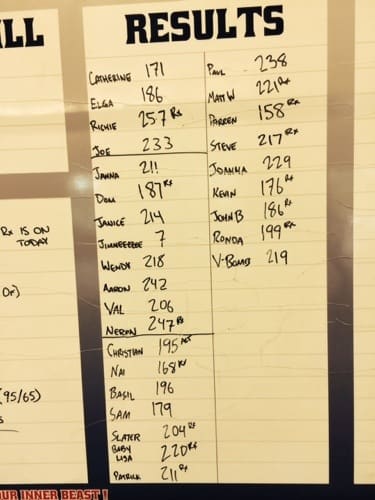 ILL
RESULTS
CATHERINE 171
ELGA 186
RICHIE 257 Rx
JOE 233
JANNA 211
DOM 187 Rx
JANICE 214
JIMMEEEEE 7
WENDY 218
AARON 242
VAL 206
NERON 247 Rx
CHRISTIAN 195
NAI 168 Rx
BASIL 196
SAM 179
SLATER 204 Rx
BABY LISA 220 Rx
PATRICK 211 Rx
PAUL 238
MATT W 221 Rx
DARREN 158 Rx
STEVE 217 Rx
JOANNA 229
KEVIN 176 Rx
JOHN B 186 Rx
RONDA 199 Rx
V-BOMB 219
Rx IS ON
TODAY
OF)
(95/65)
S
OUR INNER BEAST!